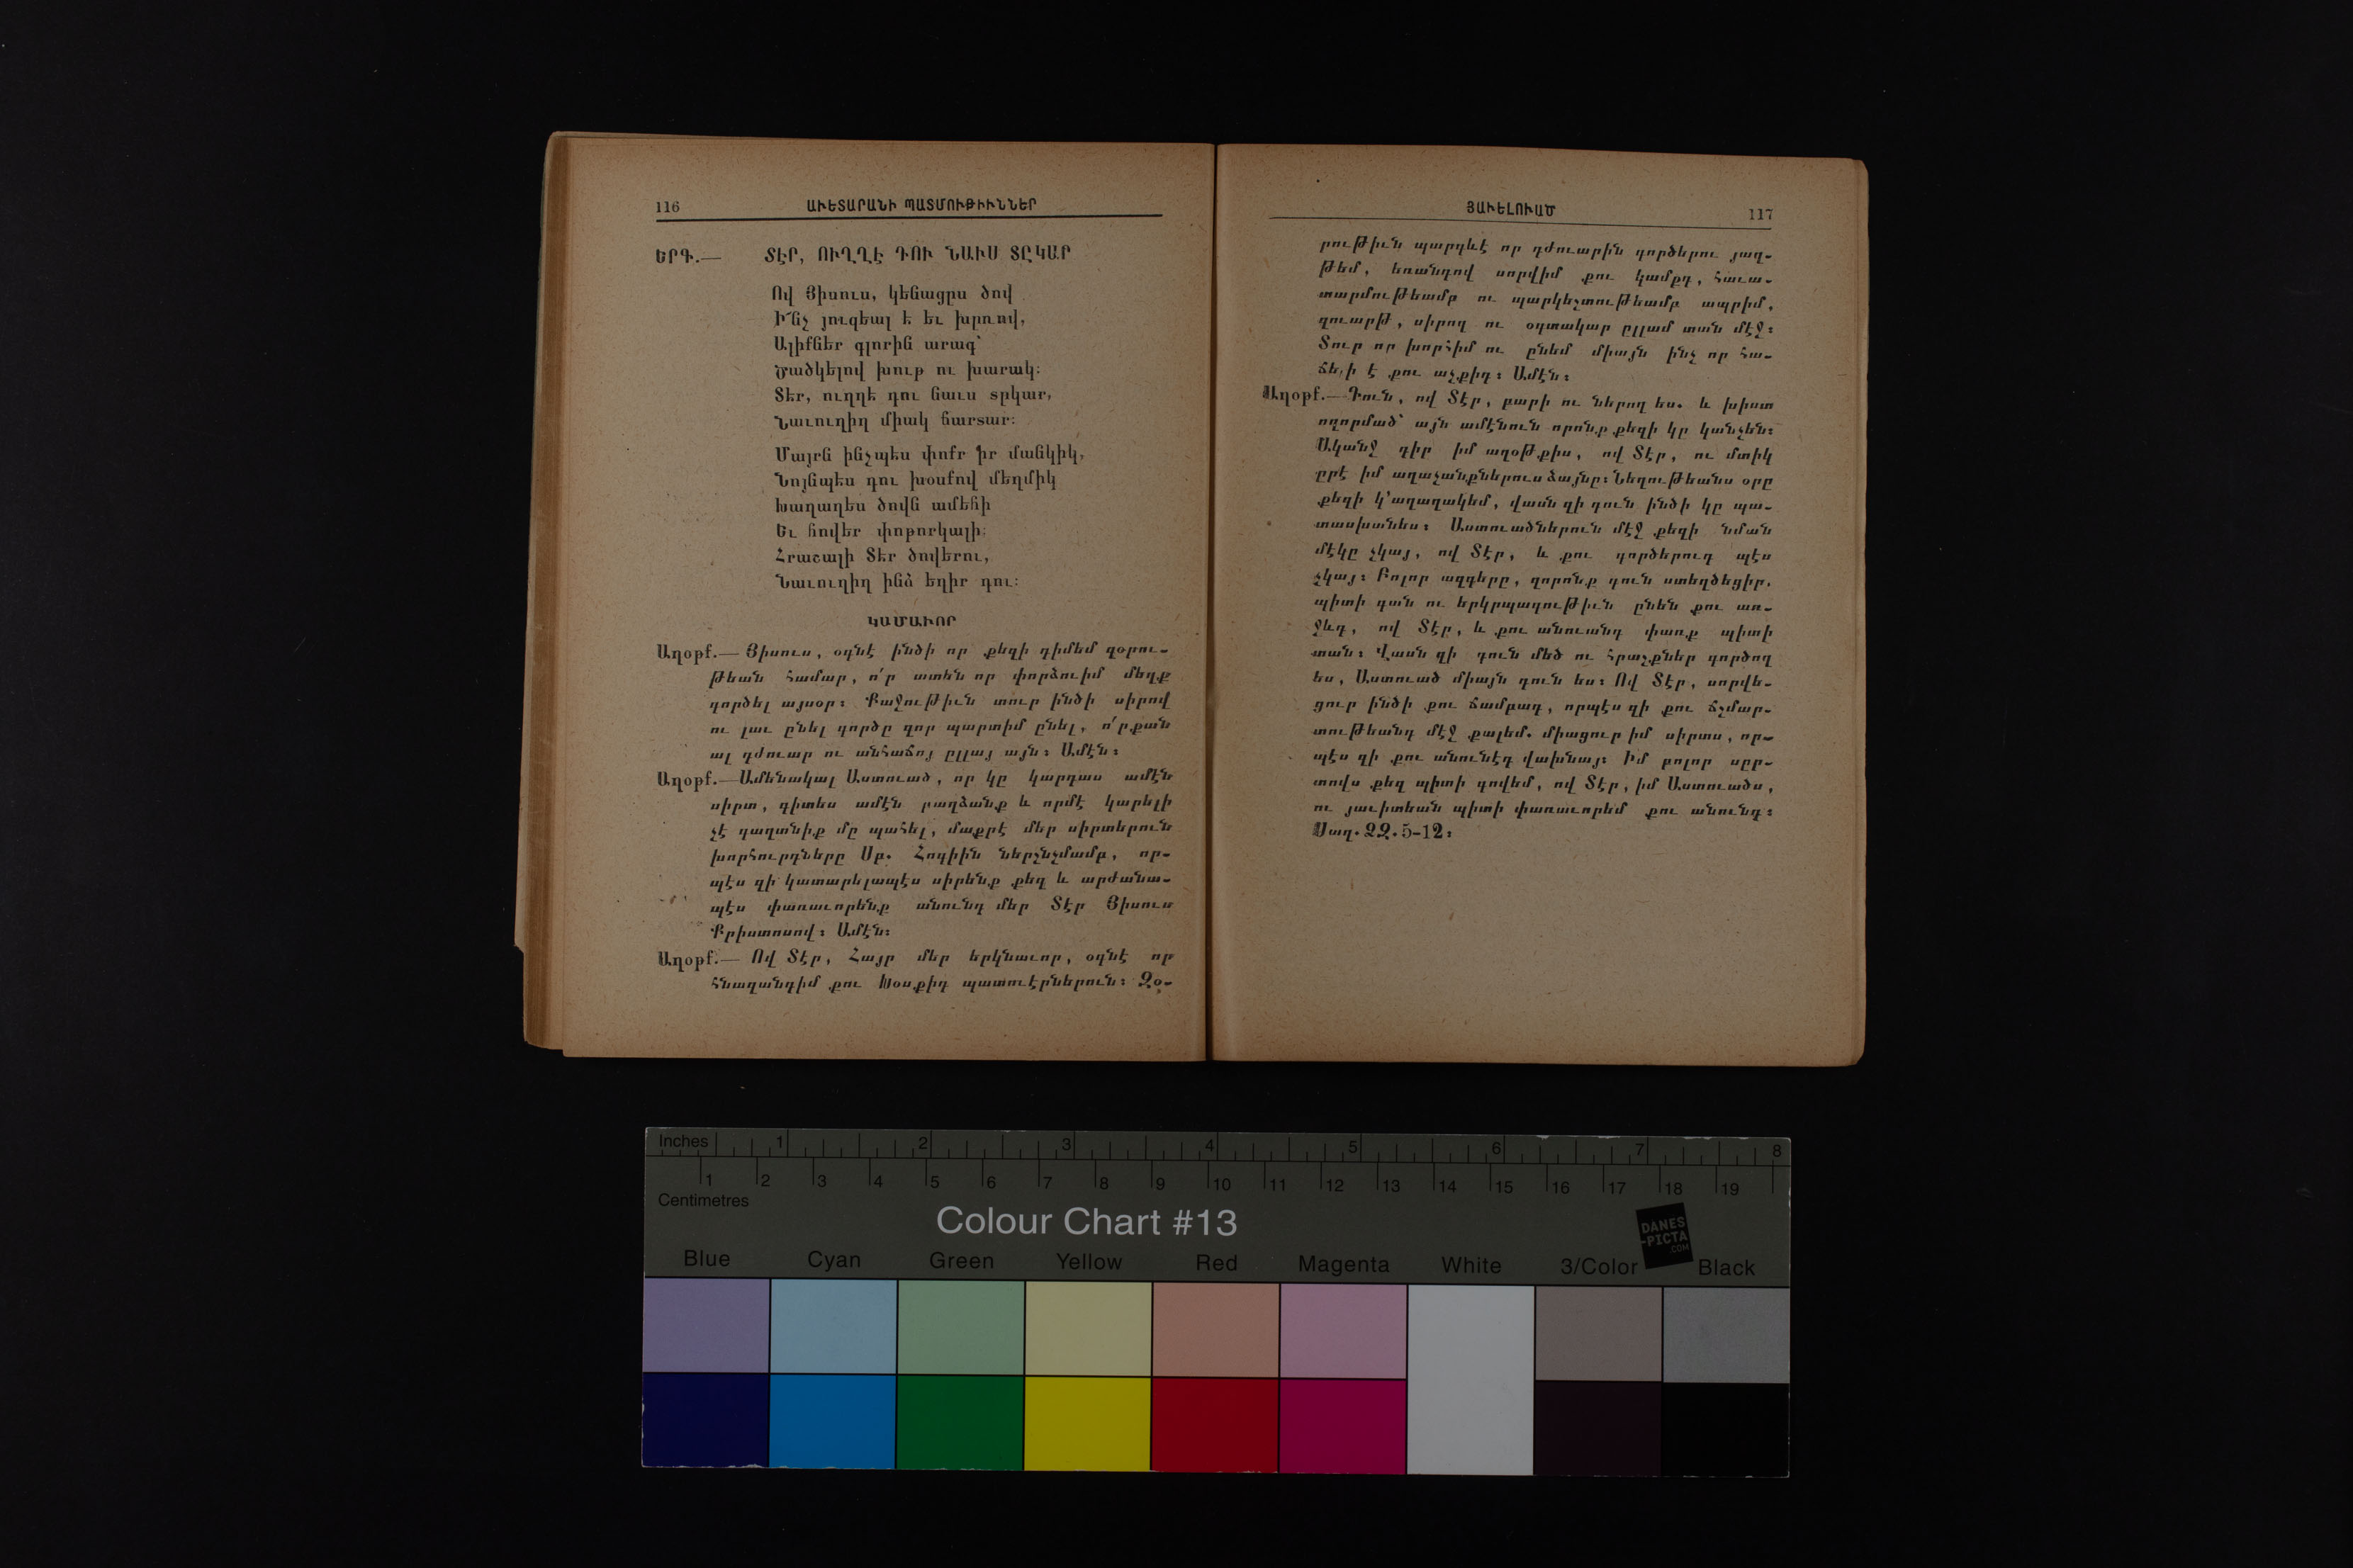 116 ԱՒԵՏԱՐԱՆԻ ՊԱՏՄՈՒԹԻՒՆՆԵՐ
ԵՐԳ.— ՏԷՐ, ՈՒՂՂԷ ԴՈՒ ՆԱՒՍ ՏԸԿԱՐ
Ով Յիսուս, կենացըս ծով
Ի՜նչ յուզեալ է եւ խռռով,
Ալիքներ գլորին արագ՝
Ծածկելով խութ ու խարակ։
Տէր, ուղղէ դու նաւս տըկար,
Նաւուղիղ միակ ճարտար։
Մայրն ինչպէս փոքր իր մանկիկ,
Նոյնպէս դու խօսքով մեղմիկ
Խաղաղես ծովն ամեհի
Եւ հովեր փոթորկալի։
Հրաշալի Տէր ծովերու,
Նաւուղիղ ինձ եղիր դու։
ԿԱՄԱՒՈՐ
Աղօթք.— Յիսուս, օգնէ ինծի որ քեզի դիմեմ զօրու-
թեան համար, ո՛ր ատեն որ փորձուիմ մեղք
գործել այսօր։ Քաջութիւն տուր ինծի սիրով
ու լաւ ընել գործը զոր պարտիմ ընել, ո՛րքան
ալ դժուար ու անհաճոյ ըլլայ այն։ Ամէն։
Աղօթք.—Ամենակալ Աստուած, որ կը կարդաս ամէն
սիրտ, գիտես ամէն բաղձանք և որմէ կարելի
չէ գաղտնիք մը պահել, մաքրէ մեր սիրտերուն
խորհուրդները Սբ. Հոգիին ներշնչմամբ, որ-
պէս զի կատարելապէս սիրենք քեզ և արժանա-
պէս փառաւորենք անունդ մեր Տէր Յիսուս
Քրիստոսով։ Ամէն։
Աղօթք.— Ով Տէր, Հայր մեր երկնաւոր, օգնէ որ
հնազանդիմ քու Խօսքիդ պատուէրներուն։ Զօ-
ՅԱՒԵԼՈՒԱԾ 117
րութիւն պարգևէ որ դժուարին գործերու յաղ-
թեմ, եռանդով սորվիմ քու կամքդ, հաւա-
տարմութեամբ ու պարկեշտութեամբ ապրիմ,
զուարթ, սիրող ու օգտակար ըլլամ տան մէջ։
Տուր որ խորհիմ ու ընեմ միայն ինչ որ հա-
ճելի է քու աչքիդ։ Ամէն։
Աղօթք.—Դուն, ով Տէր, բարի ու ներող ես. և խիստ
ողորմած՝ այն ամէնուն որոնք քեզի կը կանչեն։
Ականջ դիր իմ աղօթքիս, ով Տէր, ու մտիկ
ըրէ իմ աղաչանքներուս ձայնը։ Նեղութեանս օրը
քեզի կ՚աղաղակեմ, վասն զի դուն ինծի կը պա-
տասխանես։ Աստուածներուն մէջ քեզի նման
մէկը չկայ, ով Տէր, և քու գործերուդ պէս
չկայ։ Բոլոր ազգերը, զորոնք դուն ստեղծեցիր,
պիտի գան ու երկրպագութիւն ընեն քու առ-
ջևդ, ով Տէր, և քու անուանդ փառք պիտի
տան։ Վասն զի դուն մեծ ու հրաշքներ գործող
ես, Աստուած միայն դուն ես։ Ով Տէր, սորվե-
ցուր ինծի քու ճամբադ, որպէս զի քու ճշմար-
տութեանդ մէջ քալեմ. միացուր իմ սիրտս, որ-
պէս զի քու անունէդ վախնայ։ Իմ բոլոր սըր-
տովս քեզ պիտի գովեմ, ով Տէր, իմ Աստուածս,
ու յաւիտեան պիտի փառաւորեմ քու անունդ։
Սաղ. ՁԶ. 5-12։
Inches 1 2 3 4 5 6 7 8
1 2 3 4 5 6 7 8 9 10 11 12 13 14 15 16 17 18 19
Centimetres
Colour Chart #13
DANES
-PICTA
.COM
Blue Cyan Green Yellow Red Magenta White 3/Color Black